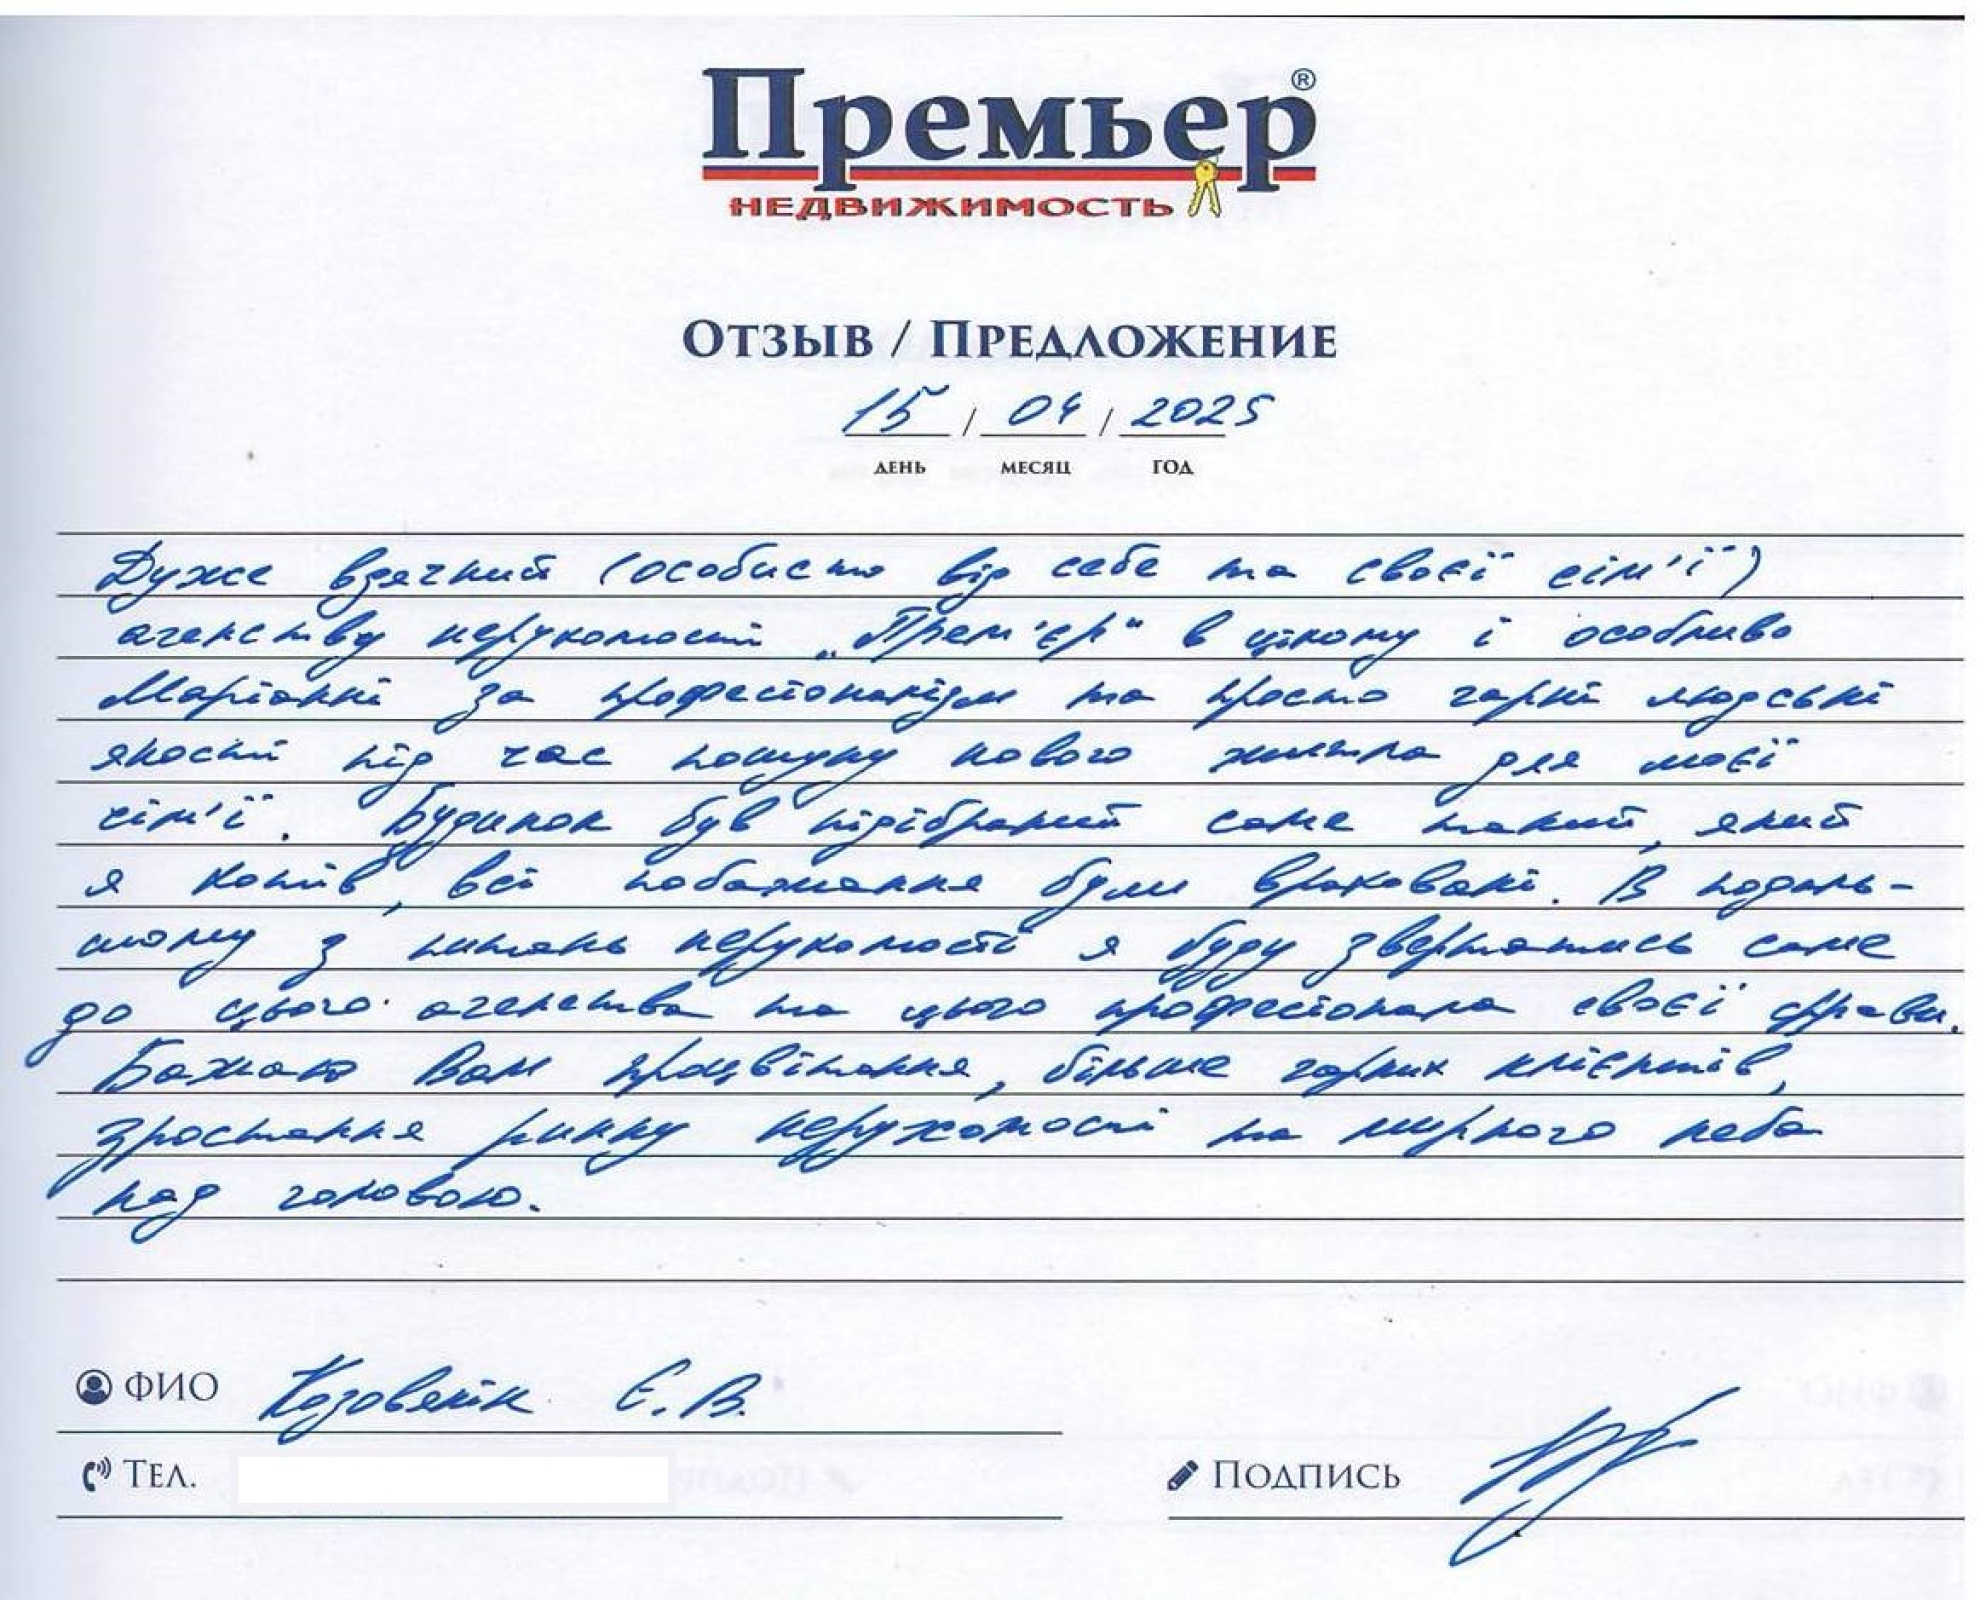 Премьер®
НЕДВИЖИМОСТЬ
Отзыв / Предложение
15 / 04 / 2025
ДЕНЬ МЕСЯЦ ГОД
Дуже вдячний (особисто від себе та своєї сім'ї)
агенству нерухомості „Прем'єр" в цілому і особливо
Маріанні за професіоналізм та просто гарні людські
якості під час пошуку нового житла для моєї
сім'ї. Будинок був підібраний саме такий, який
я хотів, всі побажання були враховані. В подаль-
шому з питань нерухомості я буду звертатись саме
до цього агенства та цього професіонала своєї справи.
Бажаю Вам процвітання, більше гарних клієнтів,
зростання ринку нерухомості та мирного неба
над головою.
ФИО Є. В.
Тел.
Подпись